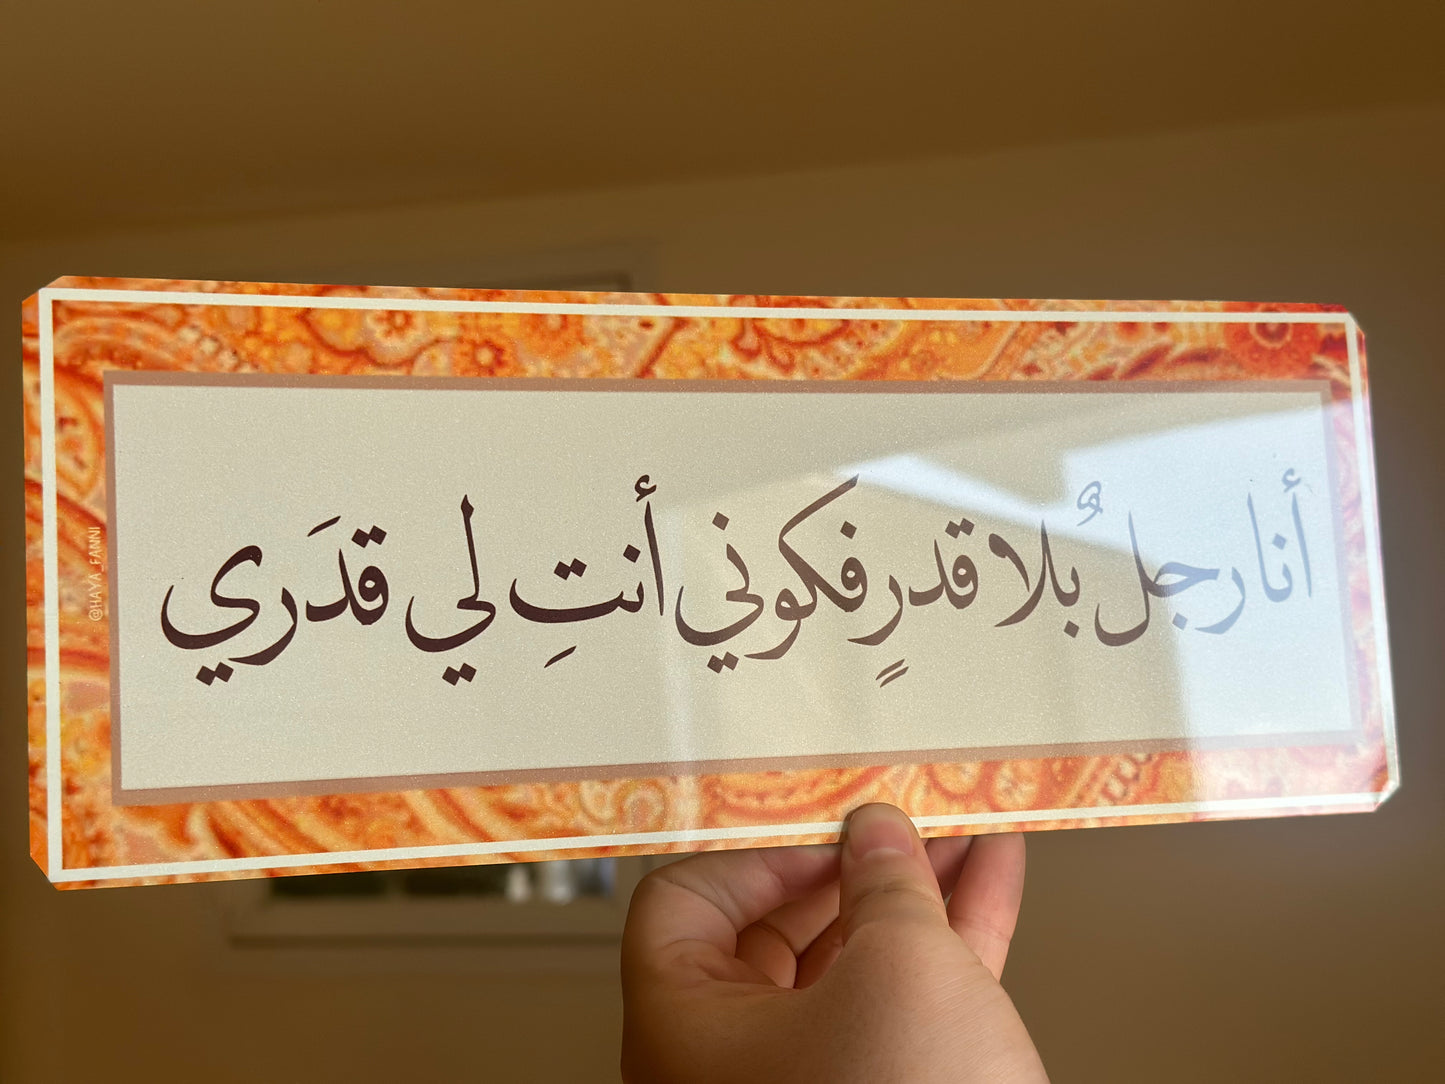 أنا رجلٌ بُلا قدرٍ فكوني أنتِ لي قدَري
@HAYA_FANNI